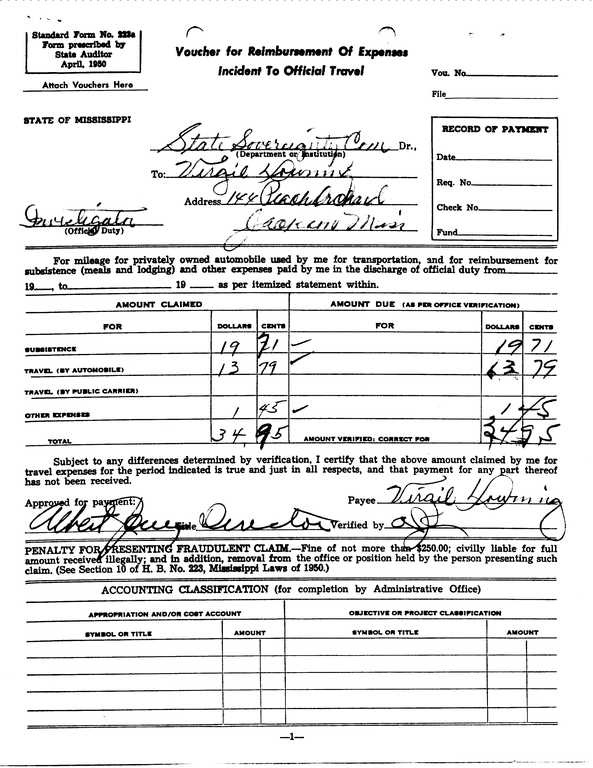 Standard Form No. 223a
Form prescribed by
State Auditor
April, 1950
Attach Vouchers Here
Voucher for Reimbursement Of Expenses
Incident To Official Travel
Vou. No.
File
STATE OF MISSISSIPPI
State Sovereignty Com Dr.,
(Department or Institution)
To: Virgil Downing
Address 144 Peach Orchard
Jackson Miss
Investigator
(Official Duty)
RECORD OF PAYMENT
Date
Req. No.
Check No.
Fund
For mileage for privately owned automobile used by me for transportation, and for reimbursement for
subsistence (meals and lodging) and other expenses paid by me in the discharge of official duty from
19 , to 19 as per itemized statement within.
AMOUNT CLAIMED AMOUNT DUE (AS PER OFFICE VERIFICATION)
FOR DOLLARS CENTS FOR DOLLARS CENTS
SUBSISTENCE 19 71 19 71
TRAVEL (BY AUTOMOBILE) 13 79 13 79
TRAVEL (BY PUBLIC CARRIER)
OTHER EXPENSES 1 45 1 45
TOTAL 34 95 AMOUNT VERIFIED; CORRECT FOR 34 95
Subject to any differences determined by verification, I certify that the above amount claimed by me for
travel expenses for the period indicated is true and just in all respects, and that payment for any part thereof
has not been received.
Approved for payment: Payee Virgil Downing
Albert Jones Title Director Verified by
PENALTY FOR PRESENTING FRAUDULENT CLAIM.—Fine of not more than $250.00; civilly liable for full
amount received illegally; and in addition, removal from the office or position held by the person presenting such
claim. (See Section 10 of H. B. No. 223, Mississippi Laws of 1950.)
ACCOUNTING CLASSIFICATION (for completion by Administrative Office)
APPROPRIATION AND/OR COST ACCOUNT OBJECTIVE OR PROJECT CLASSIFICATION
SYMBOL OR TITLE AMOUNT SYMBOL OR TITLE AMOUNT
—1—